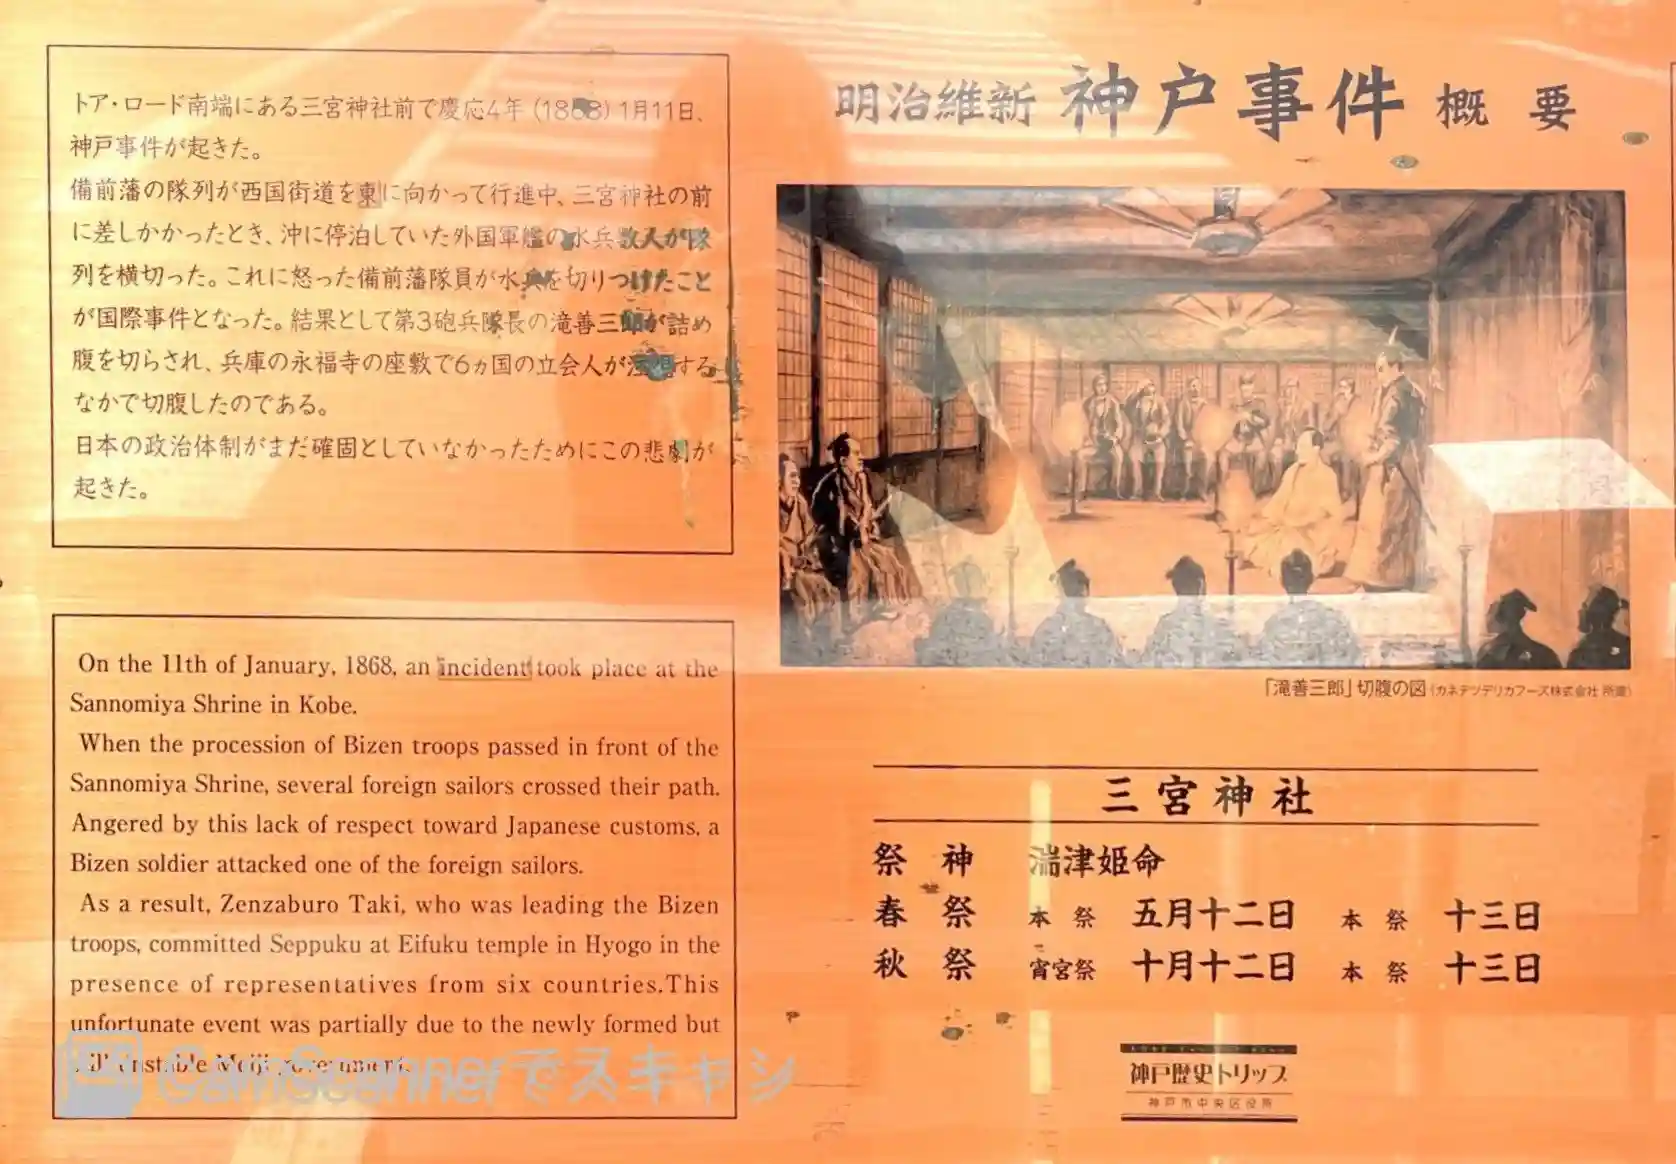 トア・ロード南端にある三宮神社前で慶応4年(1868)1月11日、
神戸事件が起きた。
備前藩の隊列が西国街道を東に向かって行進中、三宮神社の前
に差しかかったとき、沖に停泊していた外国軍艦の水兵数人が隊
列を横切った。これに怒った備前藩隊員が水兵を切りつけたこと
が国際事件となった。結果として第3砲兵隊長の滝善三郎が詰め
腹を切らされ、兵庫の永福寺の座敷で6ヵ国の立会人が注視する
なかで切腹したのである。
日本の政治体制がまだ確固としていなかったためにこの悲劇が
起きた。
On the 11th of January, 1868, an incident took place at the
Sannomiya Shrine in Kobe.
When the procession of Bizen troops passed in front of the
Sannomiya Shrine, several foreign sailors crossed their path.
Angered by this lack of respect toward Japanese customs, a
Bizen soldier attacked one of the foreign sailors.
As a result, Zenzaburo Taki, who was leading the Bizen
troops, committed Seppuku at Eifuku temple in Hyogo in the
presence of representatives from six countries.This
unfortunate event was partially due to the newly formed but
still unstable Meiji government.
CamScannerでスキャン
明治維新 神戸事件 概要
「滝善三郎」切腹の図(カネテツデリカフーズ株式会社 所蔵)
三宮神社
祭神 湍津姫命
春祭 本祭 五月十二日 本祭 十三日
秋祭 宵宮祭 十月十二日 本祭 十三日
神戸歴史トリップ
神戸市中央区役所